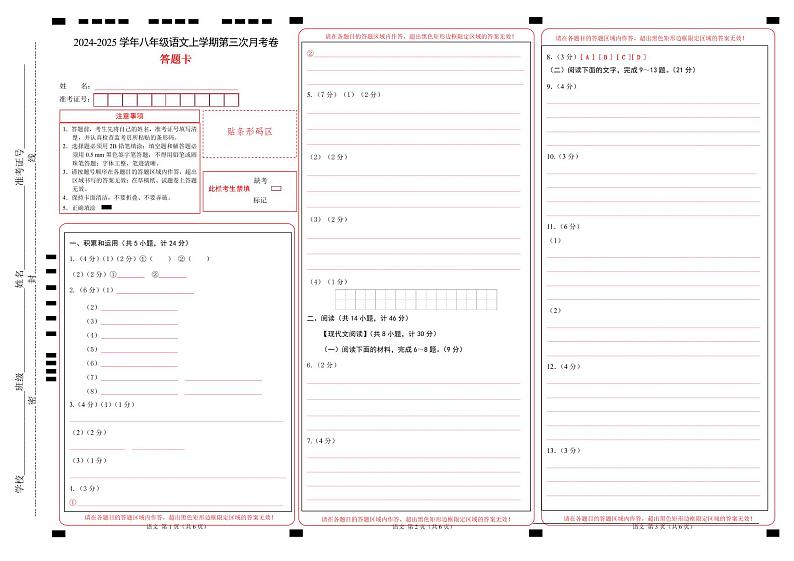 2024-2025 学年八年级语文上学期第三次月考卷
答题卡
姓 名:
准考证号:
注意事项
1. 答题前,考生先将自己的姓名,准考证号填写清
楚,并认真检查监考员所粘贴的条形码。
2. 选择题必须用 2B 铅笔填涂;填空题和解答题必
须用 0.5 mm 黑色签字笔答题,不得用铅笔或圆
珠笔答题;字体工整、笔迹清晰。
3. 请按题号顺序在各题目的答题区域内作答,超出
区域书写的答案无效;在草稿纸、试题卷上答题
无效。
4. 保持卡面清洁,不要折叠、不要弄破。
5. 正确填涂
贴条形码区
此栏考生禁填
缺考
标记
准考证号
姓名
班级
学校
线
封
密
一、积累和运用(共 5 小题,计 24 分)
1.(4 分)(1)(2 分)①( ) ②( )
(2)(2 分)① ②
2.(6 分)(1)
(2)
(3)
(4)
(5)
(6)
(7)
(8)
3.(4 分)(1)(1 分)
(2)(2 分)
(3)(1 分)
4.(3 分)
①
请在各题目的答题区域内作答,超出黑色矩形边框限定区域的答案无效!
语文 第 1 页(共 6 页)
请在各题目的答题区域内作答,超出黑色矩形边框限定区域的答案无效!
②
5.(7 分)(1)(2 分)
(2)(2 分)
(3)(2 分)
(4)(1 分)
二、阅读(共 14 小题,计 46 分)
【现代文阅读】(共 8 小题,计 30 分)
(一)阅读下面的材料,完成 6~8 题。(9 分)
6.(2 分)
7.(4 分)
请在各题目的答题区域内作答,超出黑色矩形边框限定区域的答案无效!
语文 第 2 页(共 6 页)
请在各题目的答题区域内作答,超出黑色矩形边框限定区域的答案无效!
8.(3 分)[A][B][C][D]
(二)阅读下面的文字,完成 9~13 题。(21 分)
9.(4 分)
10.(3 分)
11.(6 分)
(1)
(2)
12.(4 分)
13.(3 分)
请在各题目的答题区域内作答,超出黑色矩形边框限定区域的答案无效!
语文 第 3 页(共 6 页)